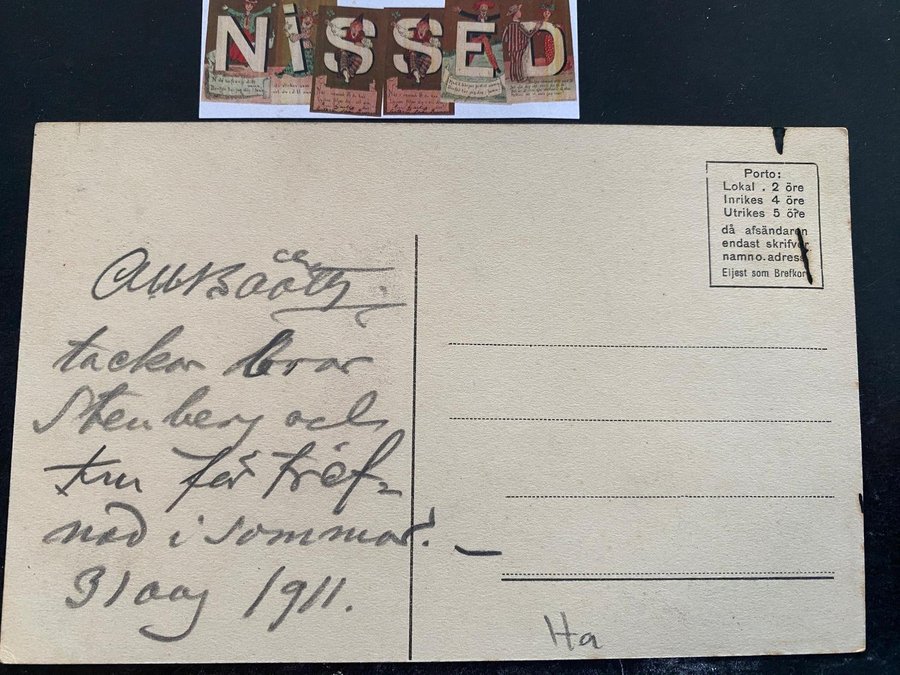 NISSED
Porto:
Lokal . 2 öre
Inrikes 4 öre
Utrikes 5 öre
då afsändaren
endast skrifver
namn o. adress
Eljest som Brefkort
tackar bror
Stenberg och
fru för tref-
nad i sommar! —
31 aug 1911.
Ha